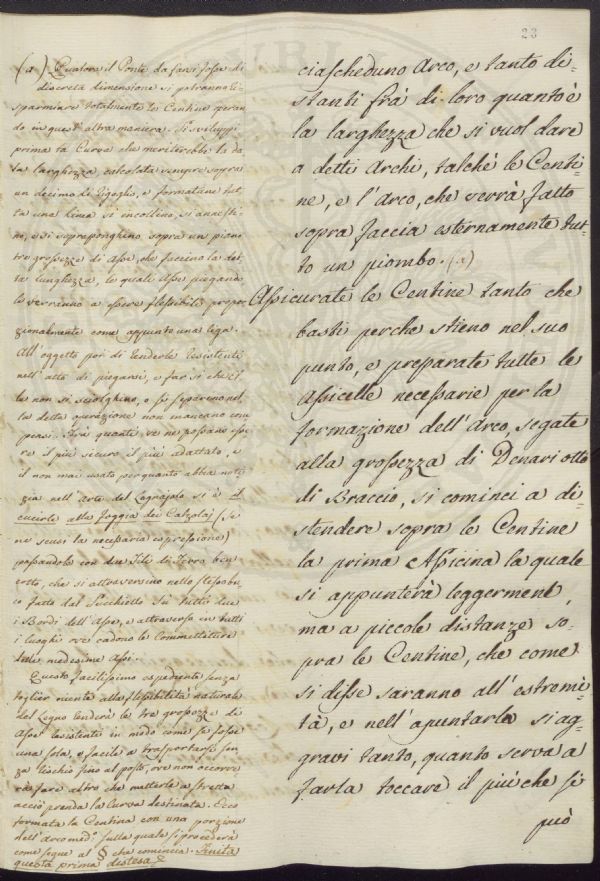 23
(a) Qualora il Ponte da farsi fosse di
discreta dimensione si potranno ri-
sparmiare totalmente le Centine peran
do in quest'altra maniera. Si sviluppi
prima la Curva che meriterebbe la da
ta larghezza calcolata sempre sopra
un decimo di rigoglio, e formatane tut
ta una linea si incollino, si annesti-
no, e si soprepongano sopra un piano
tre grossezze di Asse, che faccino la det
ta lunghezza, le quali Asse piegando
lo verranno a essere flessibili propor
zionalmente come appunto una lega.
All'oggetto poi di renderle resistenti
nell'atto di piegarsi, e far sì che el
le non si sciolghino, o si separino nel
la detta operazione non mancano com
pensi. Fra quanti ve ne possano esse
re il più sicuro il più adattato, e
il non mai usato perquanto abbia noti
zia nell'arte del Legnajolo si è il
cucirle alla foggia dei Calzolaj (Se
ne scusi la necessaria espressione)
passandole con due Fili di Ferro ben
cotto, che si attraversino nello stesso bu
co fatto dal Succhiello su tutti due
i Bordi dell'Asse, e attraverso in tutti
i luoghi ove cadono le Commettiture
delle medesime Assi.
Questo facilissimo espediente senza
toglier niente alla flessibilità naturale
del Legno renderà le tre grossezze di
Asse resistenti in modo come se fosse
una sola, e facile a trasportarsi sen
za rischio fino al posto, ove non occorre
rà fare altro che metterla a stretta
acciò prenda la Curva destinata. Ecco
formata la Centina con una porzione
dell'arco med.º sulla quale si procederà
come segue al § che comincia. Finita
questa prima distesa &
ciascheduno Arco, e tanto di-
stanti frà di loro quanto è
la larghezza che si vuol dare
a detti Archi, talchè le Centi-
ne, e l'Arco, che verrà fatto
sopra faccia esternamente tut-
to un piombo. (a)
Assicurate le Centine tanto che
basti perche stieno nel suo
punto, e preparate tutte le
Assicelle necessarie per la
formazione dell'Arco, segate
alla grossezza di Denari otto
di Braccio, si cominci a di-
stendere sopra le Centine
la prima Assicina la quale
si appunterà leggerment,
ma a piccole distanze so-
pra le Centine, che come
si disse saranno all'estremi-
tà, e nell'apuntarla si ag-
gravi tanto, quanto serva a
farla toccare il più che si
può